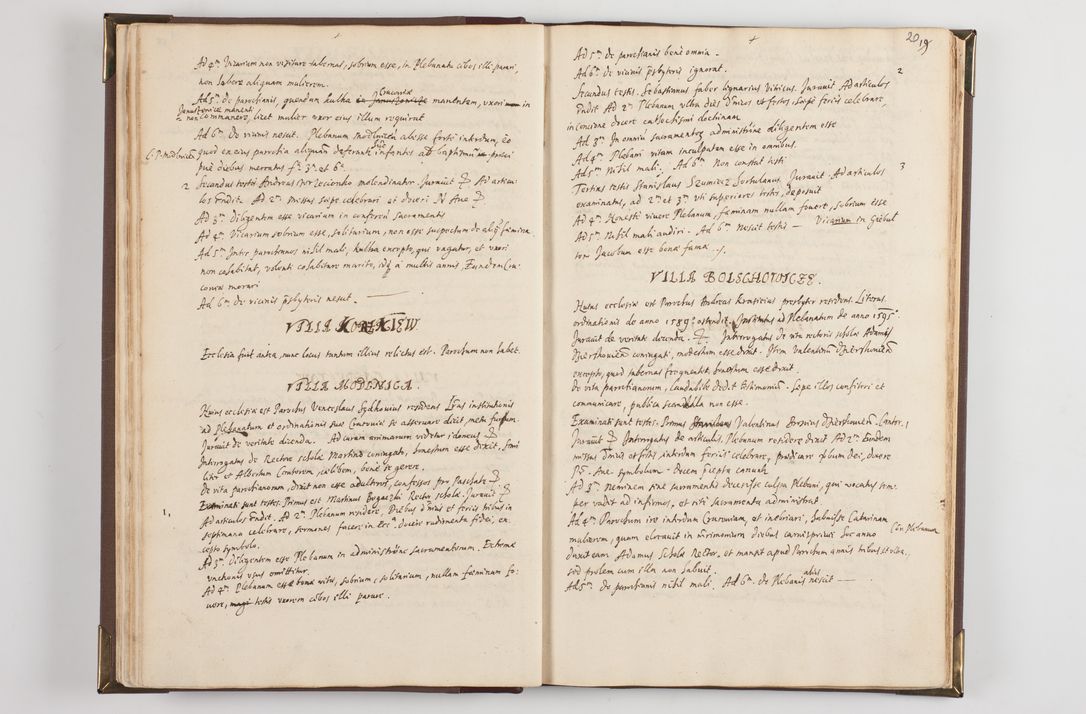 Ad 4m Vicarium non visitare tabernas, sobrium esse, in Plebanatu cibos illi parari,
non habere aliquam mulierem.
Ad 5m de parochianis, quendam kulha Cracoviæ in Januszowice manentem, uxori in
Januszowice manenti non commanere, licet mulier uxor eius illum requirat
Ad 6m De vicinis nescit. Plebanum abesse interdum,
quod ex eius parochia aliquando deferant infantes ad baptismum
2 Secundus testis Andreas molendinator. Juravit Ad articu
los respondit. Ad 2m missas sæpe celebrari et doceri
Ad 3m Diligentem esse vicarium in conferendis sacramentis
Ad 4m Vicarium sobrium esse, solitarium, non esse suspectum de aliqua fœmina
Ad 5m Inter parochianos nihil mali, kulha excepto, qui vagatur, et uxori
non cohabitat, volenti cohabitare marito, idque a multis annis. Eundem Cra
coviæ morari
Ad 6m De vicinis presbyteris nescit.
VILLA
Ecclesia fuit antea, nunc locus tantum illius relictus est. Parochum non habet.
VILLA MODLNICA.
Huius ecclesiæ est Parochus Venceslaus residens. Literas institutionis
ad Plebanatum et ordinationis suæ Cracoviæ se asservare dicit, metu furum.
Juravit de veritate dicenda. Ad curam animarum videtur idoneus
Interrogatus de Rectore scholæ Martino coniugato, honestum esse dixit, simi
liter et Albertum Cantorem, cœlibem, bene se gerere.
De vita parochianorum, dixit non esse adulteros, confessos pro Paschate
Examinati sunt testes. Primus est Martinus Rector scholæ. Juravit
1. Ad articulos respondit. Ad 2m Plebanum residere, Diebus dominicis et feriis tribus in
septimana celebrare, sermones facere in Ecclesia, docere rudimenta fidei, ex
cepto symbolo.
Ad 3m Diligentem esse Plebanum in administratione sacramentorum. Extremæ
unctionis usus omittitur.
Ad 4m Plebanum esse bonæ vitæ, sobrium, solitarium, nullam fœminam fo
vere, testis uxorem cibos illi parare.
20 19
Ad 5m de parochianis bene omnia.
Ad 6m De vicinis presbyteris ignorat.
2 Secundus testis. Sebastianus faber lignarius Juravit Ad articulos
respondit Ad 2m Plebanum ultra dies dominicos et festos, sæpe feriis celebrare,
in concione docere catechismi doctrinam
Ad 3m In omnium sacramentorum administratione diligentem esse
Ad 4m Plebani vitam inculpatam esse in omnibus.
Ad 5m Nihil mali. Ad 6m Non constat testi
3 Tertius testis Stanislaus Szumiecz hortulanus. Juravit. Ad articulos
examinatus, ad 2m et 3m uti superiores testes, deposuit
Ad 4m Honeste vivere Plebanum, fœminam nullam fovere, sobrium esse
Ad 5m Nihil mali audivi. Ad 6m Nescit testis — Vicarium in Giebul
tow Jacobum esse bonæ famæ.
VILLA BOLECHOWICZE.
Huius ecclesiæ est Parochus Andreas presbyter residens. Literas
ordinationis de anno 1589 ostendit. Institutus ad Plebanatum de anno 1595
Juravit de veritate dicenda. Interrogatus de vita rectoris scholæ Adami
coniugati, modestum esse dixit. Item Valentinum
excepto, quod tabernas frequentet, honestum esse dixit.
De vita parochianorum, laudabile dedit testimonium. Sæpe illos confiteri et
communicare, publica scandala non esse.
Examinati sunt testes. Primus Valentinus Cantor. 1
Juravit Interrogatus de articulis. Plebanum residere dixit Ad 2m Eundem
missas dominicis et festis interdum feriis celebrare, prædicare verbum Dei, docere
Pr. Ave Symbolum - Decem
Ad 3m Neminem sine sacramentis decessisse culpa Plebani, qui vocatus sem
per vadit ad infirmos, et rite sacramenta administrat
Ad 4m Parochum ire interdum Cracoviam, et inebriari, habuisse Catarinam
mulierem, quam elocavit in matrimonium diebus carnisprivii hoc anno
duxit eam Adamus Scholæ Rector, et mansit apud Parochum annis tribus
sed prolem cum illa non habuit.
Ad 5m De parochianis nihil mali. Ad 6m. De Plebanis aliis nescit —